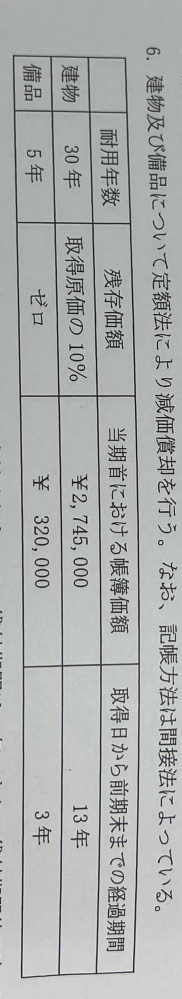 6. 建物及び備品について定額法により減価償却を行う。なお、記帳方法は間接法によっている。
耐用年数 残存価額 当期首における帳簿価額 取得日から前期末までの経過期間
建物 30年 取得原価の10% ¥2,745,000 13年
備品 5年 ゼロ ¥ 320,000 3年